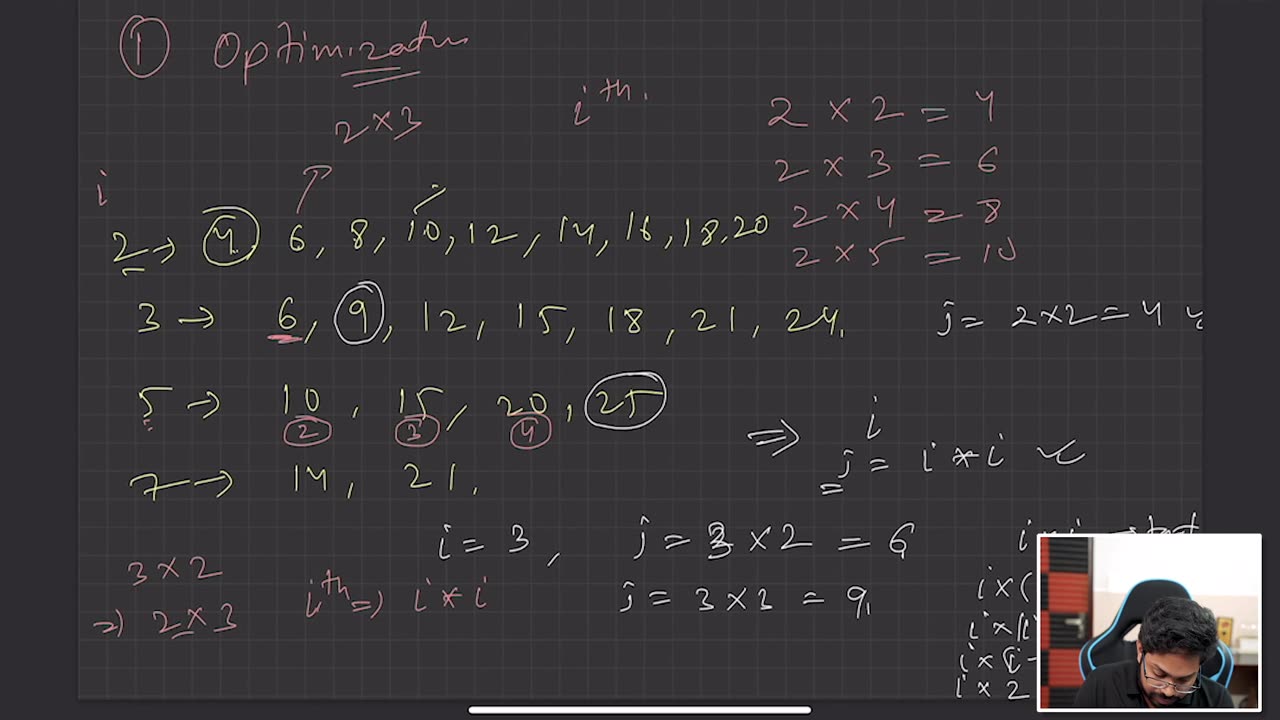 ① Optimizatn
2 × 3
i th.
2 × 2 = 4
2 × 3 = 6
2 × 4 = 8
2 × 5 = 10
i
2 → 4, 6, 8, 10, 12, 14, 16, 18, 20
3 → 6, 9, 12, 15, 18, 21, 24.
j = 2 × 2 = 4
5 → 10, 15, 20, 25
2 3 4
7 → 14, 21.
⇒ i
j = i * i
i = 3, j = 3 × 2 = 6
j = 3 × 3 = 9,
3 × 2
⇒ 2 × 3
i th ⇒ i * i
i × (
i × (i
i × (i -
i × 2